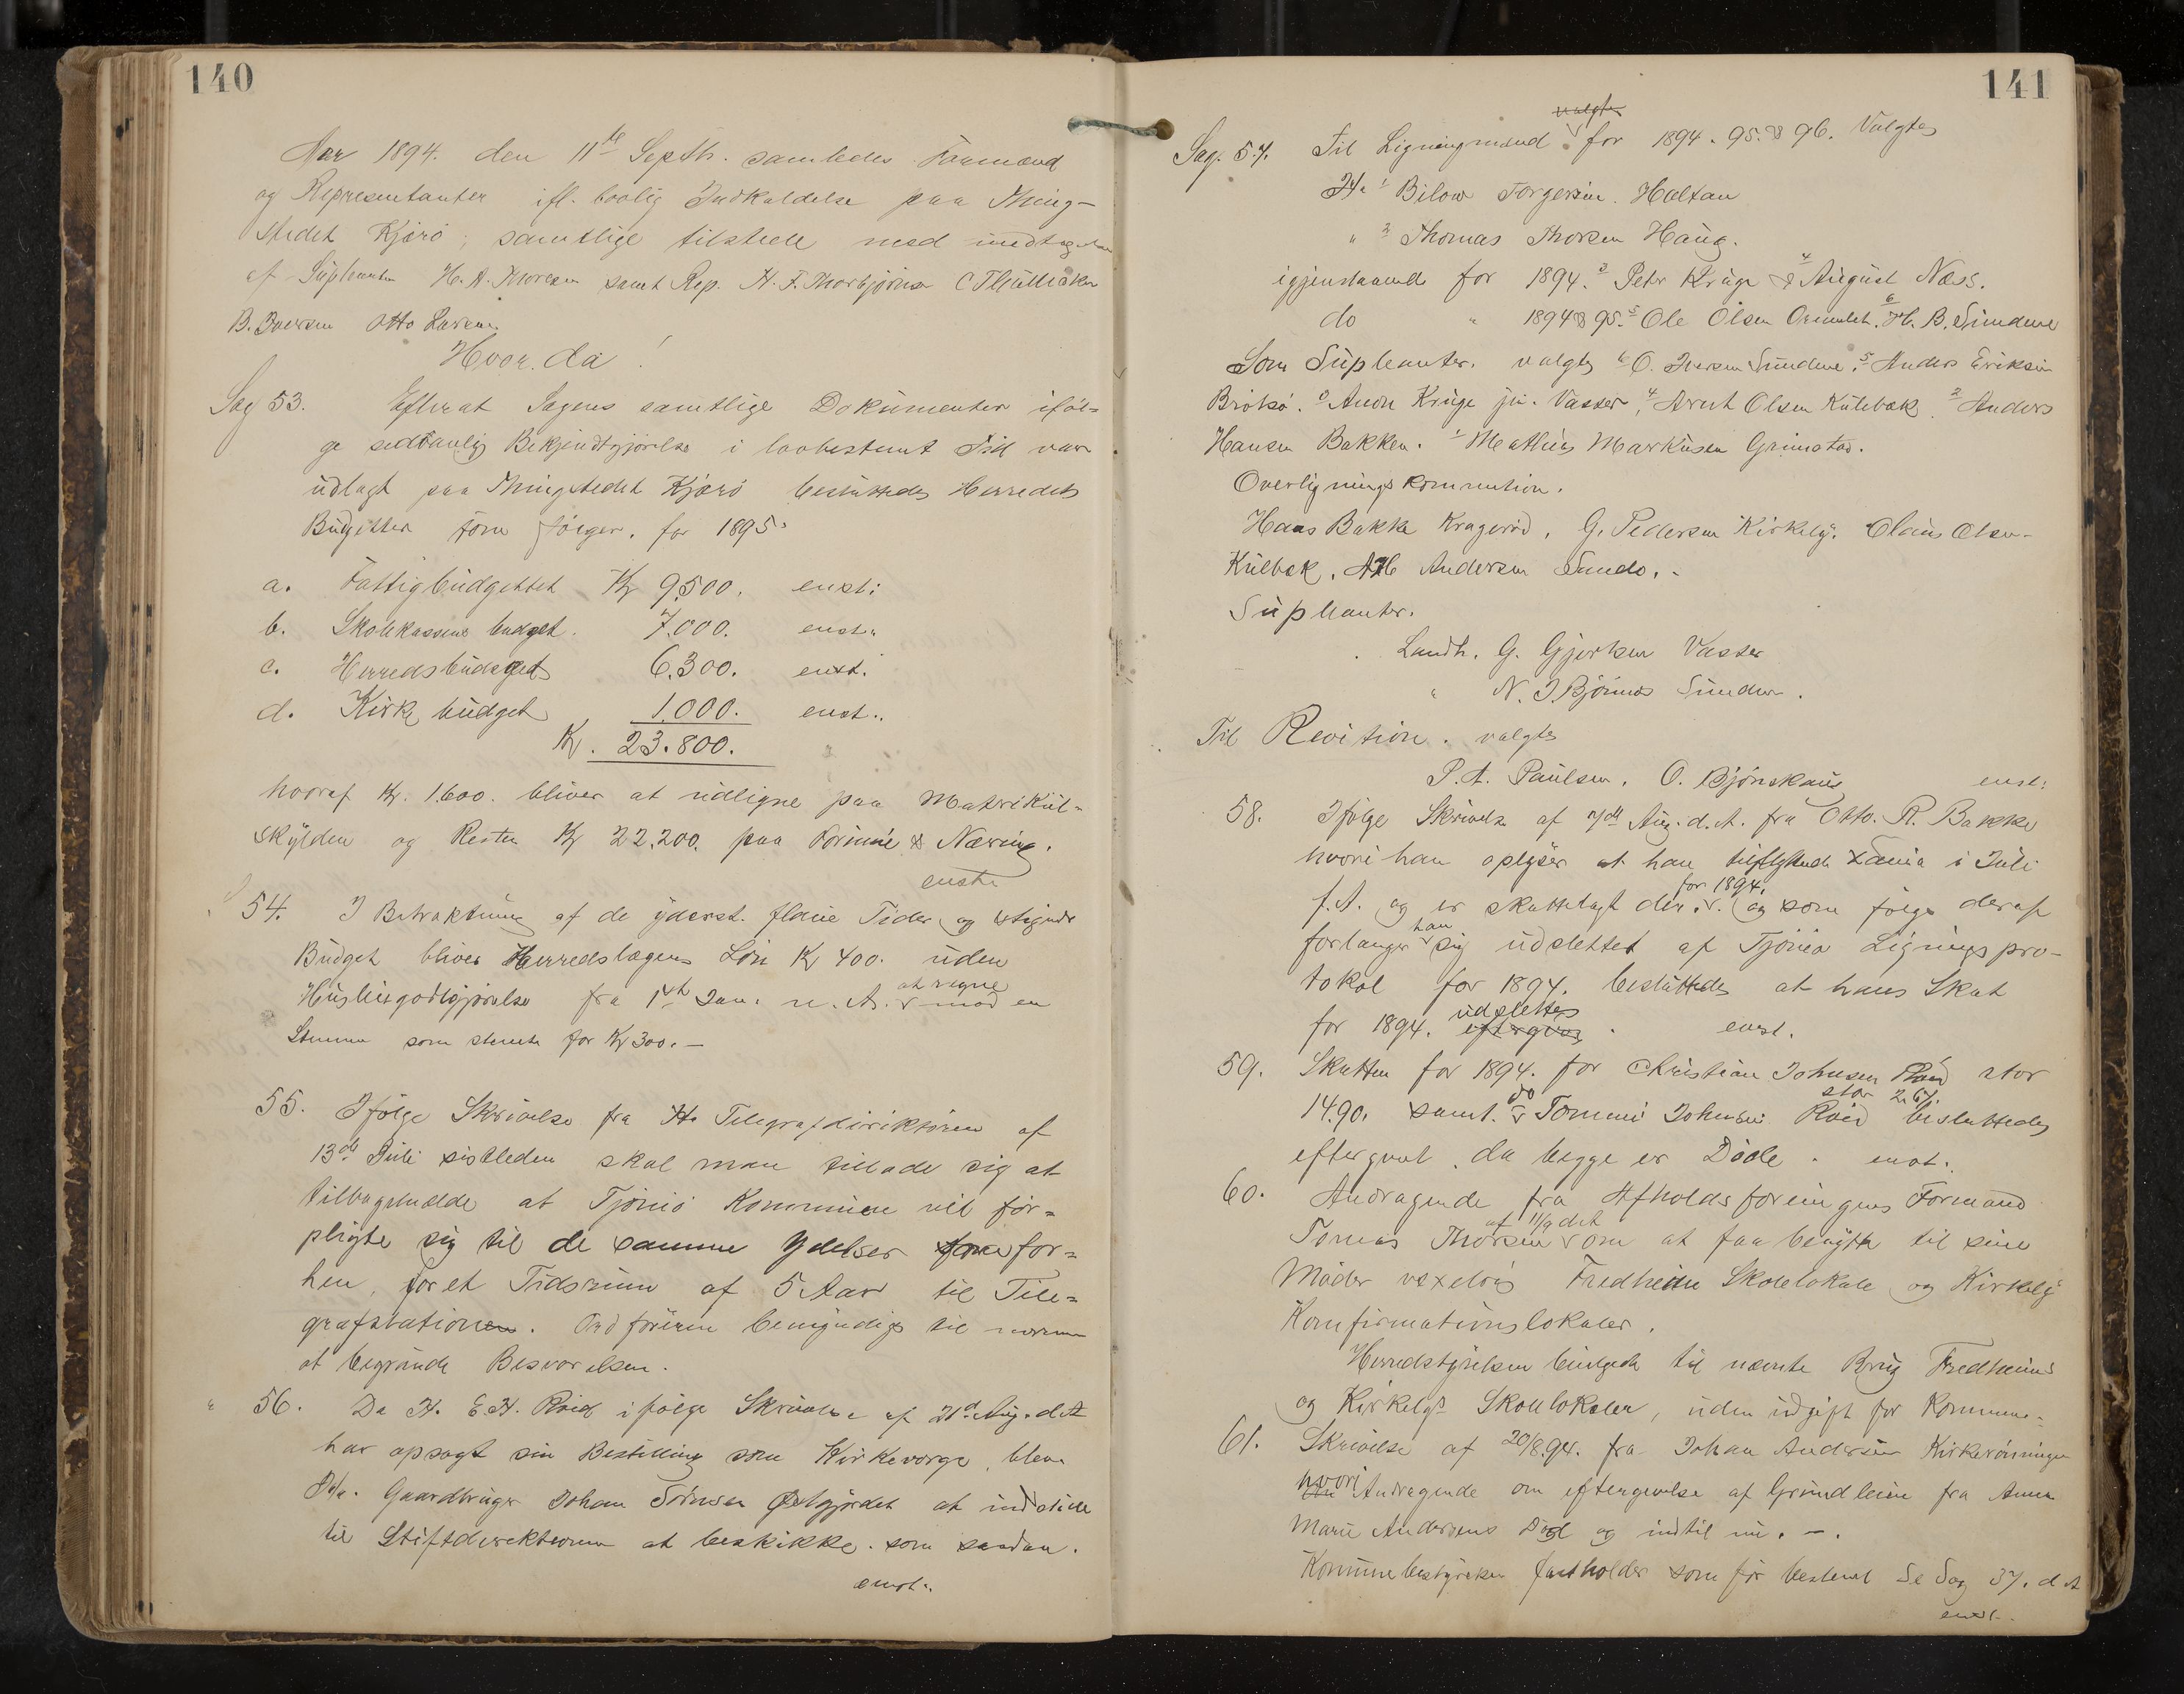 140
Aar 1894. den 11te Septbr. samledes Formænd
og Representanter ifl. lovlig Indkaldelse paa Thing-
stedet Kjærø; samtlige tilstede med undtagelse
af Supleanten H. A. Thoresen samt Rep. H. F. Thorbjørnsen
B. Iversen Otto Larsen
Hvor da!
Sag 53. Efterat Sagens samtlige Dokumenter iføl-
ge sedvanlig Bekjendtgjørelse i lovbestemt Tid var
udlagt paa Thingstedet Kjærø besluttedes Herredets
Budgetter som følger. for 1895:
a. Fattigbudgettet Kr 9,500. enst:
b. Skolekassens budget. 7.000. enst.
c. Herredsbudget 6.300. enst.
d. Kirke budget 1.000. enst.
Kr. 23.800.
hvoraf Kr. 1.600. bliver at udligne paa Matrikül-
skylden og Resten Kr 22,200. paa Formue & Næring.
enst.
54. I Betraktning af de yderst. flaue Tider og stigende
Budget bliver Herredslægens Løn Kr 400. uden
Huslieg odtgjørelse fra 1st Jan. n. A. at regne mod en
Stemme som stemte for Kr 300. –
55. Ifølge Skrivelse fra Hr Telegrafdirektøren af
13de Juli sistleden skal man tillade sig at
tilbagemelde at Tjømø Kommune vil for-
pligte sig til de samme Ydelser som for-
hen, for et Tidsrum af 5 Aar til Tele-
grafstationen. Ordføreren bemyndiges til
at begrunde Besvarelsen.
56. Da H. E. H. Roid ifølge Skrivelse af 21de Aug. d. A
har opsagt sin Bestilling som Kirkeværge, blev
Hr. Gaardbruger Johan Sørensen Østgjordet at indstille
til Stiftdirektionen at beskikke som saadan.
enst.
141
Sag. 57. Til Ligningsmænd valgtes for 1894. 95. & 96. Valgtes
Hr 1 Bilow Torgersen. Holtan
" 2 Thomas Thorsen Haug.
igjenstaaende for 1894. 3 Peter Kruge & 4 August Næss.
do " 1894 & 95. 5 Ole Olsen Ormelet. 6 H. B. Sundene
Som Supleanter. valgtes 6 O. Iversen Sundene, 5 Anders Eriksen
Brøtsø. 3 Anders Kruge jn. Vasser, 4 Arent Olsen Kulebæk. 2 Anders
Hansen Bakken. 1 Mathias Markusen Grimestad.
Overligningskommition.
Hans Bakke Kragerød, G. Pedersen Kirkely. Olaus Olsen-
Kulebæk, A. H. Andersen Sando. -
Supleanter.
Landh. G. Gjertsen Vasser
" N. J. Bjønnes Sunden.
Til Revition. valgtes
P. A. Paulsen. O. Bjønskaus enst:
58. Ifølge Skrivelse af 7de Aug. d. A. fra Otto. R. Bakke
hvori han oplyser at han tilflyttede Xania i Juli
f. A. og er skattelagt der for 1894. og som følge deraf
forlanger han sig udslettet af Tjømø Ligningspro-
tokol for 1894. besluttedes at hans Skat
for 1894. eftergives udslettes. enst.
59. Skatten for 1894. for Christian Johnsen Roid stor
14.90. samt. do Tommi Johnsen Roid stor 2.67. besluttedes
eftergivet, da begge er Døde. enst.
60. Andragende fra Afholdsforeningens Formand
Tomas Thorsen af 11/9 det om at faa benytte til sine
Møder vexelvis Fredheim Skolelokale og Kirkely
Konfirmationslokaler.
Herredstyrelsen bevilgede til nævnte Brug Fredheims
og Kirkelys Skolelokaler, uden udgift for Kommune-
61. Skrivelse af 20/8.94. fra Johan Andersen Kirkerønningen
hvori Andragende om eftergivelse af Grundleie fra Anne
Marie Andersens Død og indtil nu. –.
Kommunebestyrelsen fastholder som før bestemt Se Sag 37. d. A
enst.